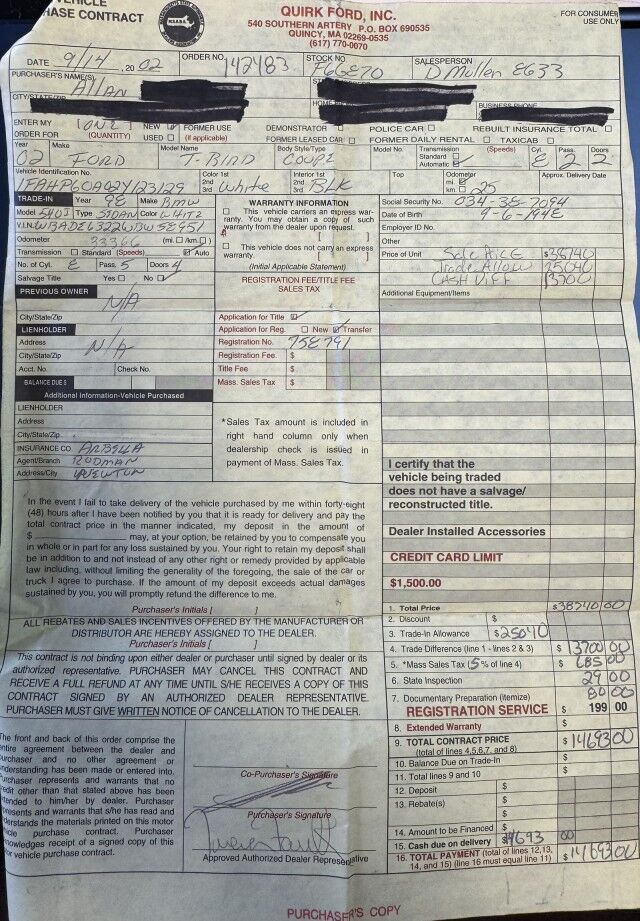 VEHICLE
PURCHASE CONTRACT
QUIRK FORD, INC.
540 SOUTHERN ARTERY P.O. BOX 690535
QUINCY, MA 02269-0535
(617) 770-0070
FOR CONSUMER USE ONLY
DATE 9/14, 20 02 ORDER NO. 142483 STOCK NO. F6G270 SALESPERSON D Mullen
PURCHASER'S NAME(S) Allan
CITY/STATE/ZIP BUSINESS PHONE
ENTER MY (ONE) NEW FORMER USE DEMONSTRATOR POLICE CAR REBUILT INSURANCE TOTAL
ORDER FOR (QUANTITY) USED (If applicable) FORMER LEASED CAR FORMER DAILY RENTAL TAXICAB
Year Make Model Name Body Style/Type Model No. Transmission (Speeds) Cyl. Pass. Doors
02 FORD T-BIRD COUPE Standard Automatic 8 2 2
Vehicle Identification No. Color 1st 2nd 3rd Interior 1st 2nd 3rd Top Odometer Approx. Delivery Date
White BLK mi. km. 25
TRADE-IN Year 98 Make BMW
Model 540I Type SEDAN Color WHITE
V.I.N.
Odometer 33366 (mi. /km. )
Transmission Standard (Speeds) Auto
No. of Cyl. 8 Pass. 5 Doors 4
Salvage Title Yes No
WARRANTY INFORMATION
This vehicle carries an express warranty. You may obtain a copy of such warranty from the dealer upon request.
[ ]
This vehicle does not carry an express warranty. [ ]
(Initial Applicable Statement)
Social Security No.
Date of Birth 9-6-1948
Employer ID No.
Other
Price of Unit Sale Price $38740
Trade Allow 25040
CASH DIFF 13700
Additional Equipment/Items
PREVIOUS OWNER
N/A
City/State/Zip
LIENHOLDER
Address N/A
City/State/Zip
Acct. No. Check No.
BALANCE DUE $
REGISTRATION FEE/TITLE FEE
SALES TAX
Application for Title
Application for Reg. New Transfer
Registration No. 758791
Registration Fee. $
Title Fee $
Mass. Sales Tax $
Additional Information-Vehicle Purchased
LIENHOLDER
Address
City/State/Zip
INSURANCE CO. ARBELLA
Agent/Branch RODMAN
Address/City NEWTON
*Sales Tax amount is included in
right hand column only when
dealership check is issued in
payment of Mass. Sales Tax.
I certify that the
vehicle being traded
does not have a salvage/
reconstructed title.
Dealer Installed Accessories
CREDIT CARD LIMIT
$1,500.00
In the event I fail to take delivery of the vehicle purchased by me within forty-eight
(48) hours after I have been notified by you that it is ready for delivery and pay the
total contract price in the manner indicated, my deposit in the amount of
$ may, at your option, be retained by you to compensate you
in whole or in part for any loss sustained by you. Your right to retain my deposit shall
be in addition to and not instead of any other right or remedy provided by applicable
law including, without limiting the generality of the foregoing, the sale of the car or
truck I agree to purchase. If the amount of my deposit exceeds actual damages
sustained by you, you will promptly refund the difference to me.
Purchaser's Initials [ ]
ALL REBATES AND SALES INCENTIVES OFFERED BY THE MANUFACTURER OR
DISTRIBUTOR ARE HEREBY ASSIGNED TO THE DEALER.
Purchaser's Initials [ ]
This contract is not binding upon either dealer or purchaser until signed by dealer or its
authorized representative. PURCHASER MAY CANCEL THIS CONTRACT AND
RECEIVE A FULL REFUND AT ANY TIME UNTIL S/HE RECEIVES A COPY OF THIS
CONTRACT SIGNED BY AN AUTHORIZED DEALER REPRESENTATIVE.
PURCHASER MUST GIVE WRITTEN NOTICE OF CANCELLATION TO THE DEALER.
1. Total Price $38740 00
2. Discount $
3. Trade-In Allowance $25040
4. Trade Difference (line 1 - lines 2 & 3) $ 13700 00
5. *Mass Sales Tax (5% of line 4) $ 685 00
6. State Inspection 29 00
7. Documentary Preparation (itemize) 80 00
REGISTRATION SERVICE $ 199 00
8. Extended Warranty $
9. TOTAL CONTRACT PRICE (total of lines 4,5,6,7, and 8) $ 14693 00
10. Balance Due on Trade-In $
11. Total lines 9 and 10 $
12. Deposit $
13. Rebate(s) $
$
14. Amount to be Financed $
15. Cash due on delivery $14693 00
16. TOTAL PAYMENT (total of lines 12,13, 14, and 15) (line 16 must equal line 11) $ 14693 00
The front and back of this order comprise the
entire agreement between the dealer and
purchaser and no other agreement or
understanding has been made or entered into.
Purchaser represents and warrants that no
credit other than that stated above has been
extended to him/her by dealer. Purchaser
represents and warrants that s/he has read and
understands the materials printed on this motor
vehicle purchase contract. Purchaser
acknowledges receipt of a signed copy of this
motor vehicle purchase contract.
Co-Purchaser's Signature
Purchaser's Signature
Approved Authorized Dealer Representative
PURCHASER'S COPY